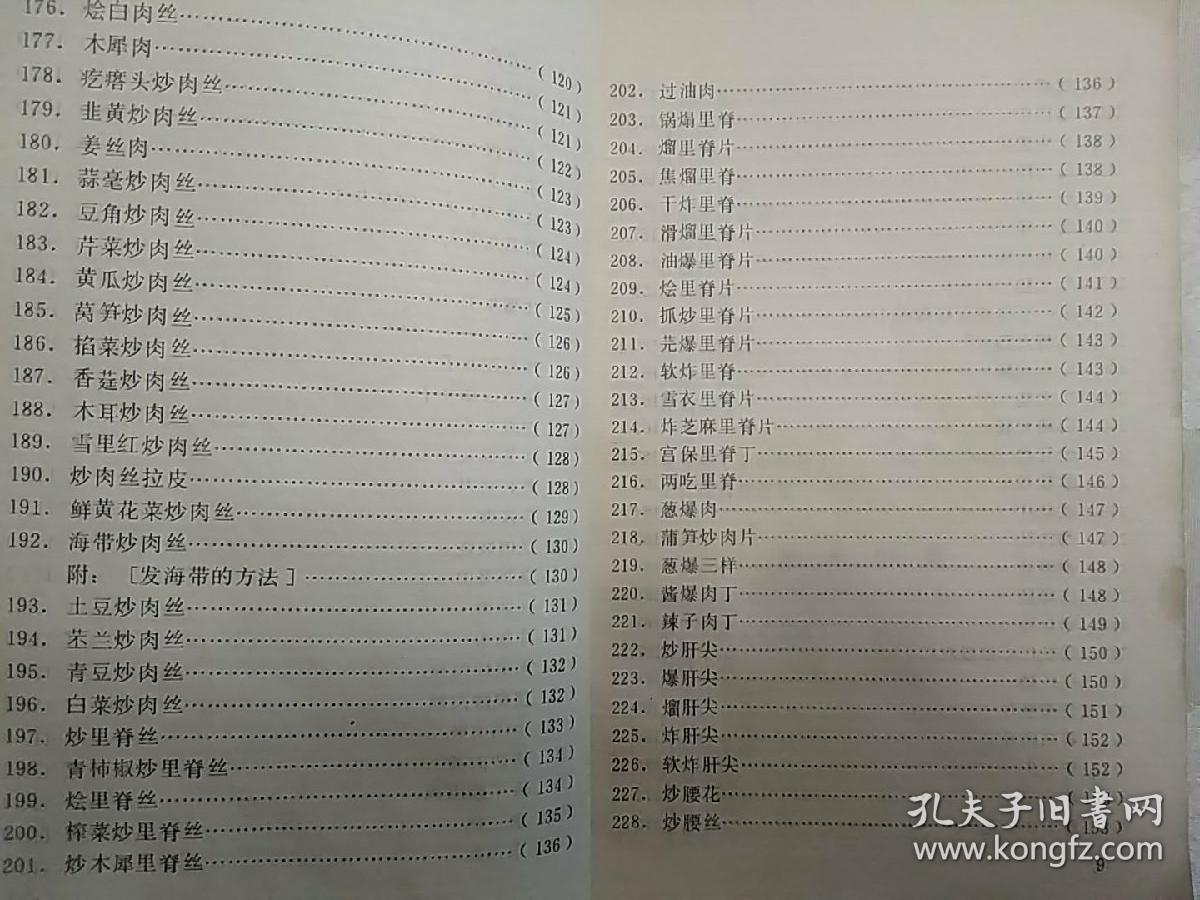 176. 烩白肉丝……(120)
177. 木犀肉……(121)
178. 疙瘩头炒肉丝……(121)
179. 韭黄炒肉丝……(122)
180. 姜丝肉……(123)
181. 蒜毫炒肉丝……(123)
182. 豆角炒肉丝……(124)
183. 芹菜炒肉丝……(124)
184. 黄瓜炒肉丝……(125)
185. 莴笋炒肉丝……(126)
186. 掐菜炒肉丝……(126)
187. 香菇炒肉丝……(127)
188. 木耳炒肉丝……(127)
189. 雪里红炒肉丝……(128)
190. 炒肉丝拉皮……(128)
191. 鲜黄花菜炒肉丝……(129)
192. 海带炒肉丝……(130)
附：［发海带的方法］……(130)
193. 土豆炒肉丝……(131)
194. 苤兰炒肉丝……(131)
195. 青豆炒肉丝……(132)
196. 白菜炒肉丝……(132)
197. 炒里脊丝……(133)
198. 青柿椒炒里脊丝……(134)
199. 烩里脊丝……(134)
200. 榨菜炒里脊丝……(135)
201. 炒木犀里脊丝……(136)
202. 过油肉……(136)
203. 锅塌里脊……(137)
204. 熘里脊片……(138)
205. 焦熘里脊……(138)
206. 干炸里脊……(139)
207. 滑熘里脊片……(140)
208. 油爆里脊片……(140)
209. 烩里脊片……(141)
210. 抓炒里脊片……(142)
211. 芫爆里脊片……(143)
212. 软炸里脊……(143)
213. 雪衣里脊片……(144)
214. 炸芝麻里脊片……(144)
215. 宫保里脊丁……(145)
216. 两吃里脊……(146)
217. 葱爆肉……(147)
218. 蒲笋炒肉片……(147)
219. 葱爆三样……(148)
220. 酱爆肉丁……(148)
221. 辣子肉丁……(149)
222. 炒肝尖……(150)
223. 爆肝尖……(150)
224. 熘肝尖……(151)
225. 炸肝尖……(152)
226. 软炸肝尖……(152)
227. 炒腰花……
228. 炒腰丝……(153)
9
孔夫子旧書网
www.kongfz.com